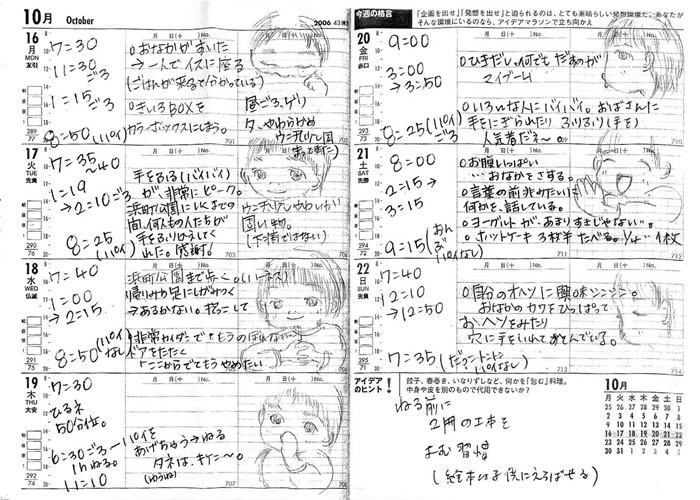 10月 October
2006
16
月
MON
友引
7=30
11=30ごろ
1=15ごろ
8=50(パイ0)
○おなかがすいた
→一人でイスに座る
(ごはんが来るで分かっている)
○きいろBOXを
カラーボックスにしまう。
昼ごろ、ゲリ
夕、やわらかめ
701
17
火
TUE
先負
7=35
~40
1=19
→2=10ごろ
8=25
(パイ0)
手をふる(バイバイ)
が、非常にピーク。
浜町公園にいくまでの
間、何人もの人たちが
手をふりかえして
くれた。感謝!
固い物。
(下痢ではない)
18
水
WED
仏滅
7=40
1=00
→2=15
8=50(パイ0なし)
浜町公園まで歩く。(ハーネス)
帰りみち足にしがみつく
→あるかない。抱っこして
ドアをたたく
19
木
THU
大安
7=30
ひるネ
50分位。
6=30ごろ
1hねる。
11=10
パイを
あげちゃう→ねる
707
708
今週の格言
「企画を出せ」「発想を出せ」と迫られるのは、とても素晴らしい発想環境だ。あなたが
そんな環境にいるのなら、アイデアマラソンで立ち向かえ
20
金
FRI
赤口
9=00
3=00
→3=50
8=25(パイ0)ごろ
○ひきだし、何でもだすのが
マイブーム
○いろいろな人にバイバイ。おばさんに
手をにぎられたり ふりふり(手を)
人気者だネ〜。
709
710
21
土
SAT
先勝
8=00
2=15→
3=15
9=15(おんぶ パイ0なし)
○お腹いっぱい
…おなかをさする。
○言葉の前兆みたいに
何かを、話している。
○ヨーグルトが、あまりすきじゃない。
○ホットケーキ3枚半たべる。1/4 1枚
711
712
22
日
SUN
先負
7=40
2=10
→12=50
7=35(だっこトントン パイ0なし)
○自分のオヘソに興味シンシン。
おなかのカワをひっぱって
おヘソをみたり
穴に手をいれてあそんでいる。
713
714
アイデア
のヒント!
餃子、春巻き、いなりずしなど、何かを「包む」料理。
中身や皮を別のもので代用できないか?
ねる前に
2冊の絵本を
よむ習慣
(絵本は子供にえらばせる)
10月
月 火 水 木 金 土 日
25 26 27 28 29 30 1
2 3 4 5 6 7 8
9 10 11 12 13 14 15
16 17 18 19 20 21 22
23 24 25 26 27 28 29
30 31 1 2 3 4 5